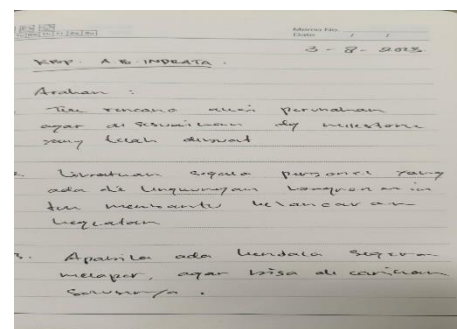 Memo No.
Date / /
3 - 8 - 2023.
KBP. A.B. INDRATA.
Arahan :
Tiap rencana aksi perubahan
agar di sesuaikan dg milestone
yang telah dibuat
Libratkan segala personel yang
ada di lingkungan
membantu kelancaran
kegiatan
3. Apabila ada kendala segera
melapor, agar bisa di carikan
solusinya.